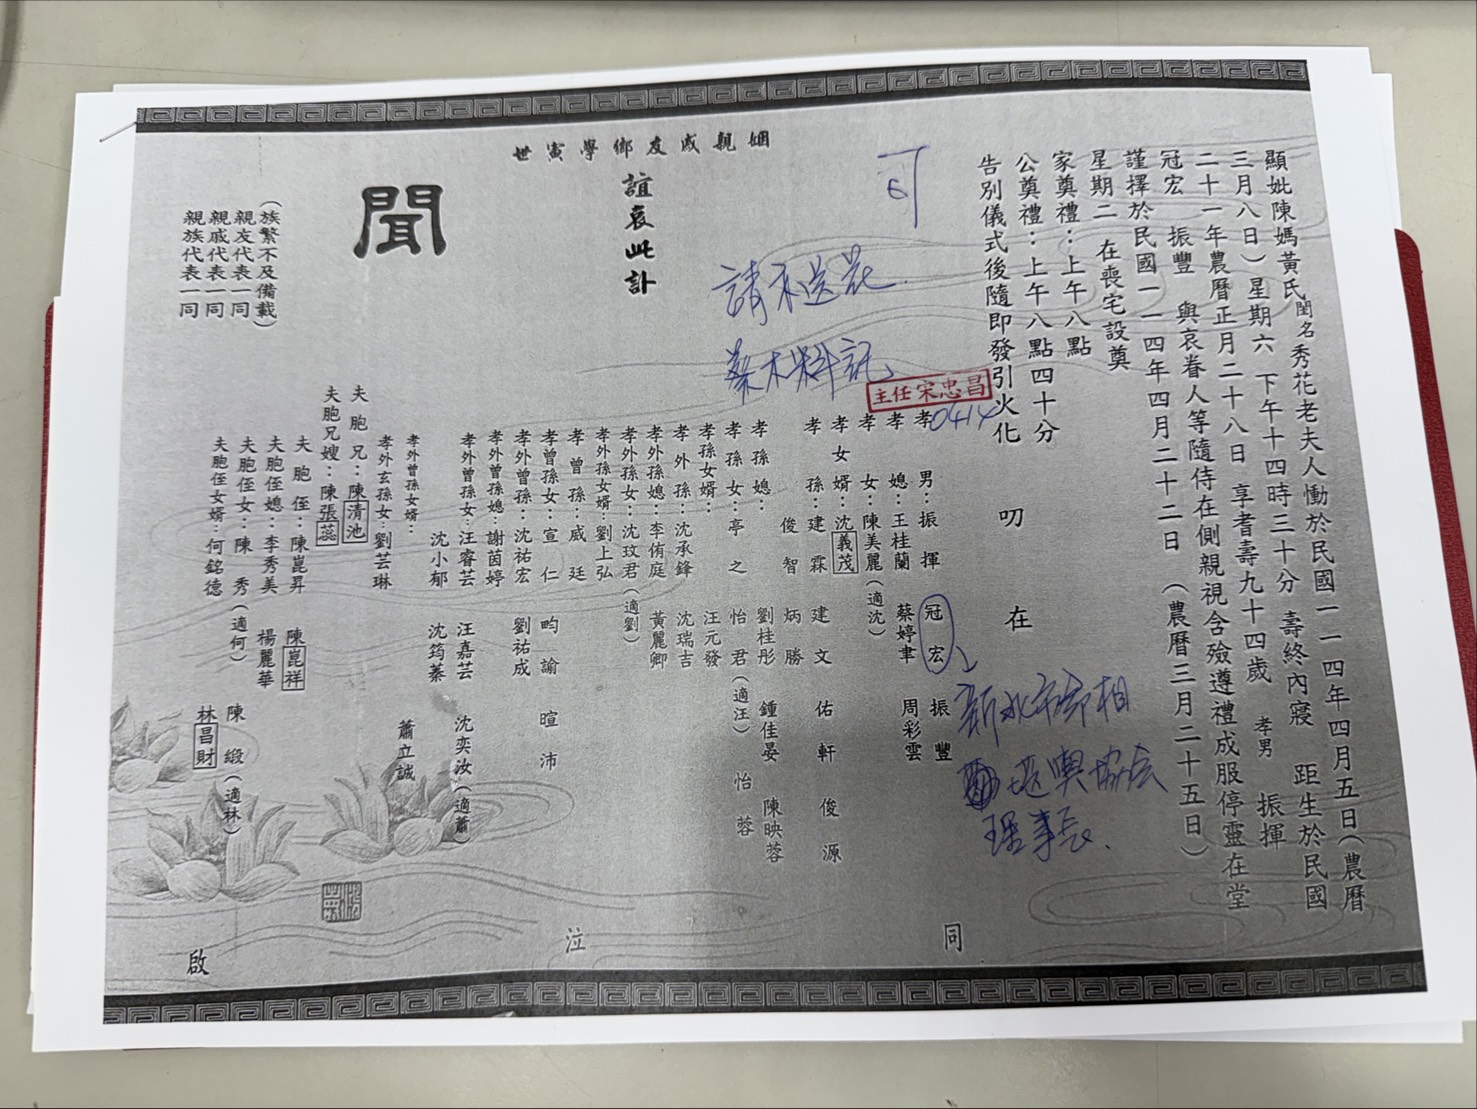 顯妣陳媽黃氏閨名秀花老夫人慟於民國一一四年四月五日(農曆
三月八日)星期六 下午十四時三十分 壽終內寢 距生於民國
二十一年農曆正月二十八日 享耆壽九十四歲 孝男 振揮
冠宏 振豐 與哀眷人等隨侍在側親視含殮遵禮成服停靈在堂
謹擇於民國一一四年四月二十二日 (農曆三月二十五日)
星期二 在喪宅設奠
家奠禮：上午八點
公奠禮：上午八點四十分
告別儀式後隨即發引火化
叨 在
姻親戚友鄉學寅世
誼哀此訃
聞
可
請禾送花
蔡木料託
主任宋忠昌
0414
新北市命相
堪輿協会
理事長
孝男：振揮 冠宏 振豐
孝媳：王桂蘭 蔡婷聿 周彩雲
孝女：陳美麗(適沈)
孝女婿：沈義茂
孝孫：建霖 建文 佑軒 俊源
俊智 炳勝
孝孫媳： 劉桂彤 鍾佳晏 陳映蓉
孝孫女：亭之 怡君(適汪) 怡蓉
孝孫女婿： 汪元發
孝外孫：沈承鋒 沈瑞吉
孝外孫媳：李侑庭 黃麗卿
孝外孫女：沈玟君(適劉)
孝外孫女婿：劉上弘
孝曾孫：威廷
孝曾孫女：宣仁 昀諭 暄沛
孝外曾孫：沈祐宏 劉祐成
孝外曾孫媳：謝茵婷
孝外曾孫女：汪睿芸 汪嘉芸 沈奕汝(適蕭)
沈小郁 沈筠蓁
孝外曾孫女婿： 蕭立誠
孝外玄孫女：劉芸琳
夫胞兄：陳清池
夫胞兄嫂：陳張蕊
夫胞侄：陳崑昇 陳崑祥
夫胞侄媳：李秀美 楊麗華
夫胞侄女：陳秀(適何) 陳緞(適林)
夫胞侄女婿：何銘德 林昌財
(族繁不及備載)
親友代表一同
親戚代表一同
親族代表一同
同 泣 啟